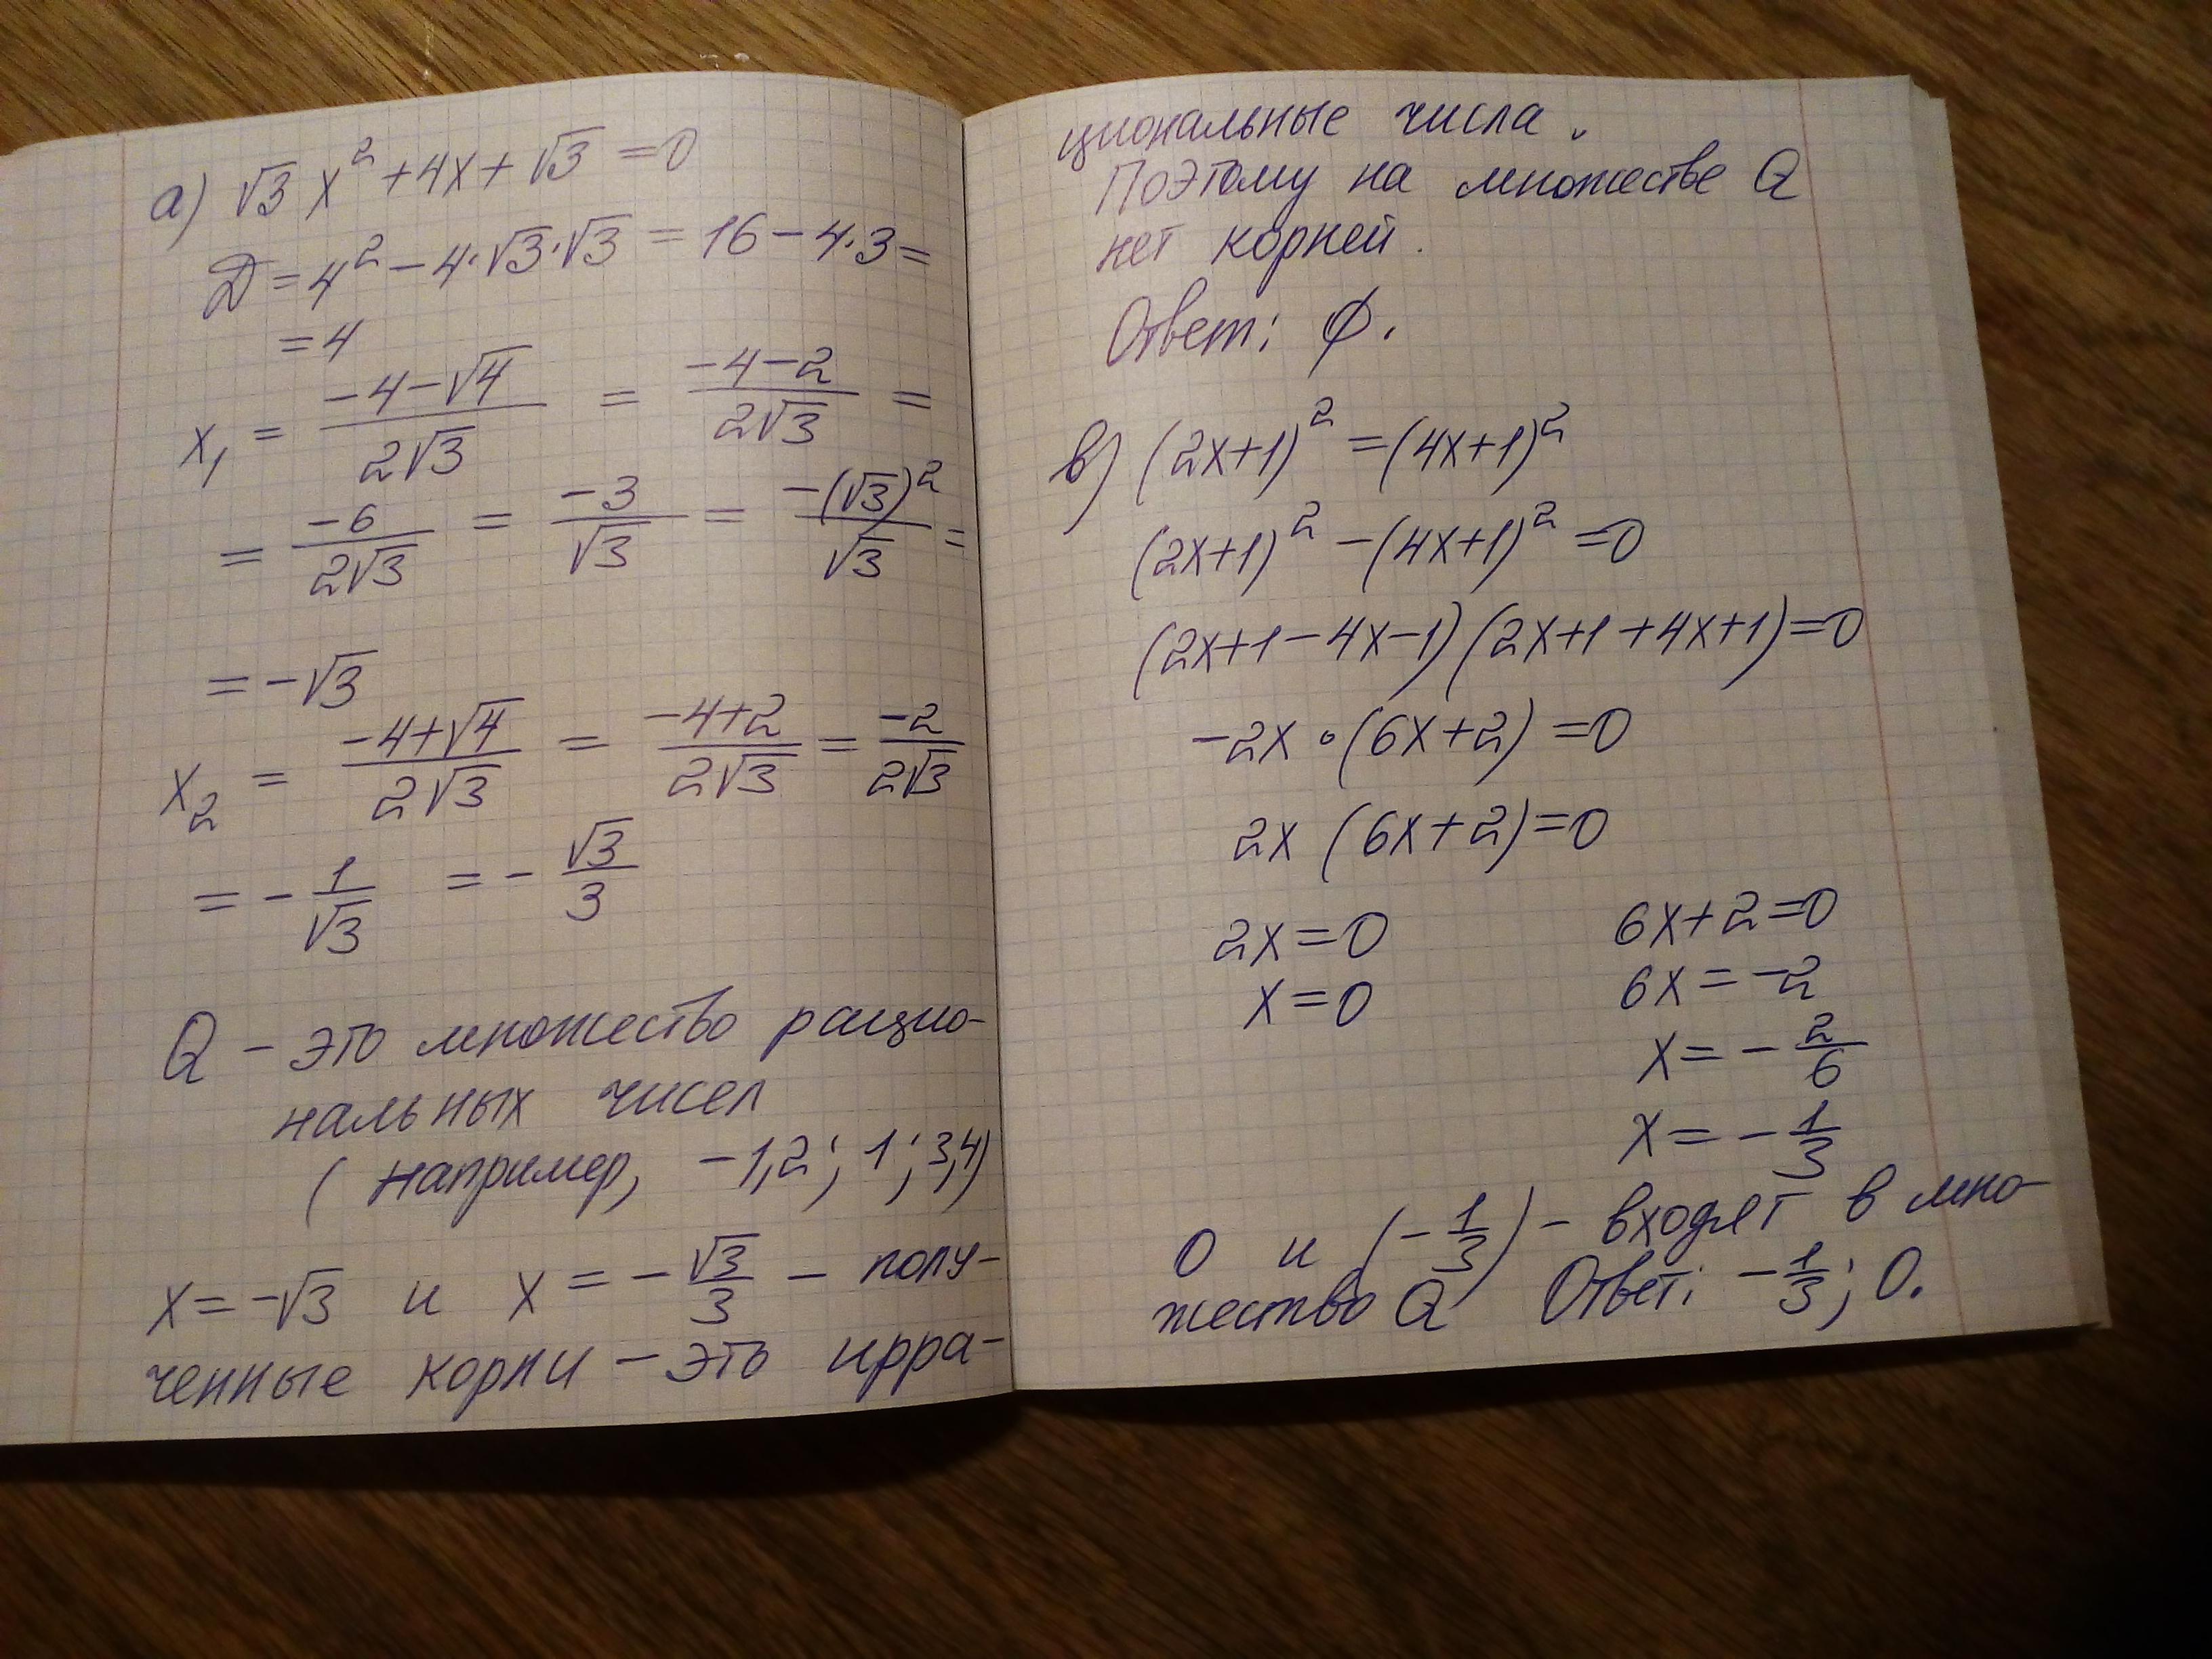 а) √3 x² + 4x + √3 = 0
D = 4² − 4·√3·√3 = 16 − 4·3 =
= 4
x₁ = (−4−√4)/(2√3) = (−4−2)/(2√3) =
= −6/(2√3) = −3/√3 = −(√3)²/√3 =
= −√3
x₂ = (−4+√4)/(2√3) = (−4+2)/(2√3) = −2/(2√3)
= − 1/√3 = − √3/3
Q – это множество рацио-
нальных чисел
( например, −1,2; 1; 3,4)
x = −√3 и x = − √3/3 – полу-
ченные корни – это ирра-
циональные числа.
Поэтому на множестве Q
нет корней.
Ответ: ∅.
в) (2x+1)² = (4x+1)²
(2x+1)² − (4x+1)² = 0
(2x+1−4x−1)(2x+1+4x+1)=0
−2x · (6x+2) = 0
2x (6x+2) = 0
2x = 0 6x+2=0
x = 0 6x = −2
x = − 2/6
x = − 1/3
0 и (− 1/3) – входят в мно-
жество Q Ответ: − 1/3; 0.